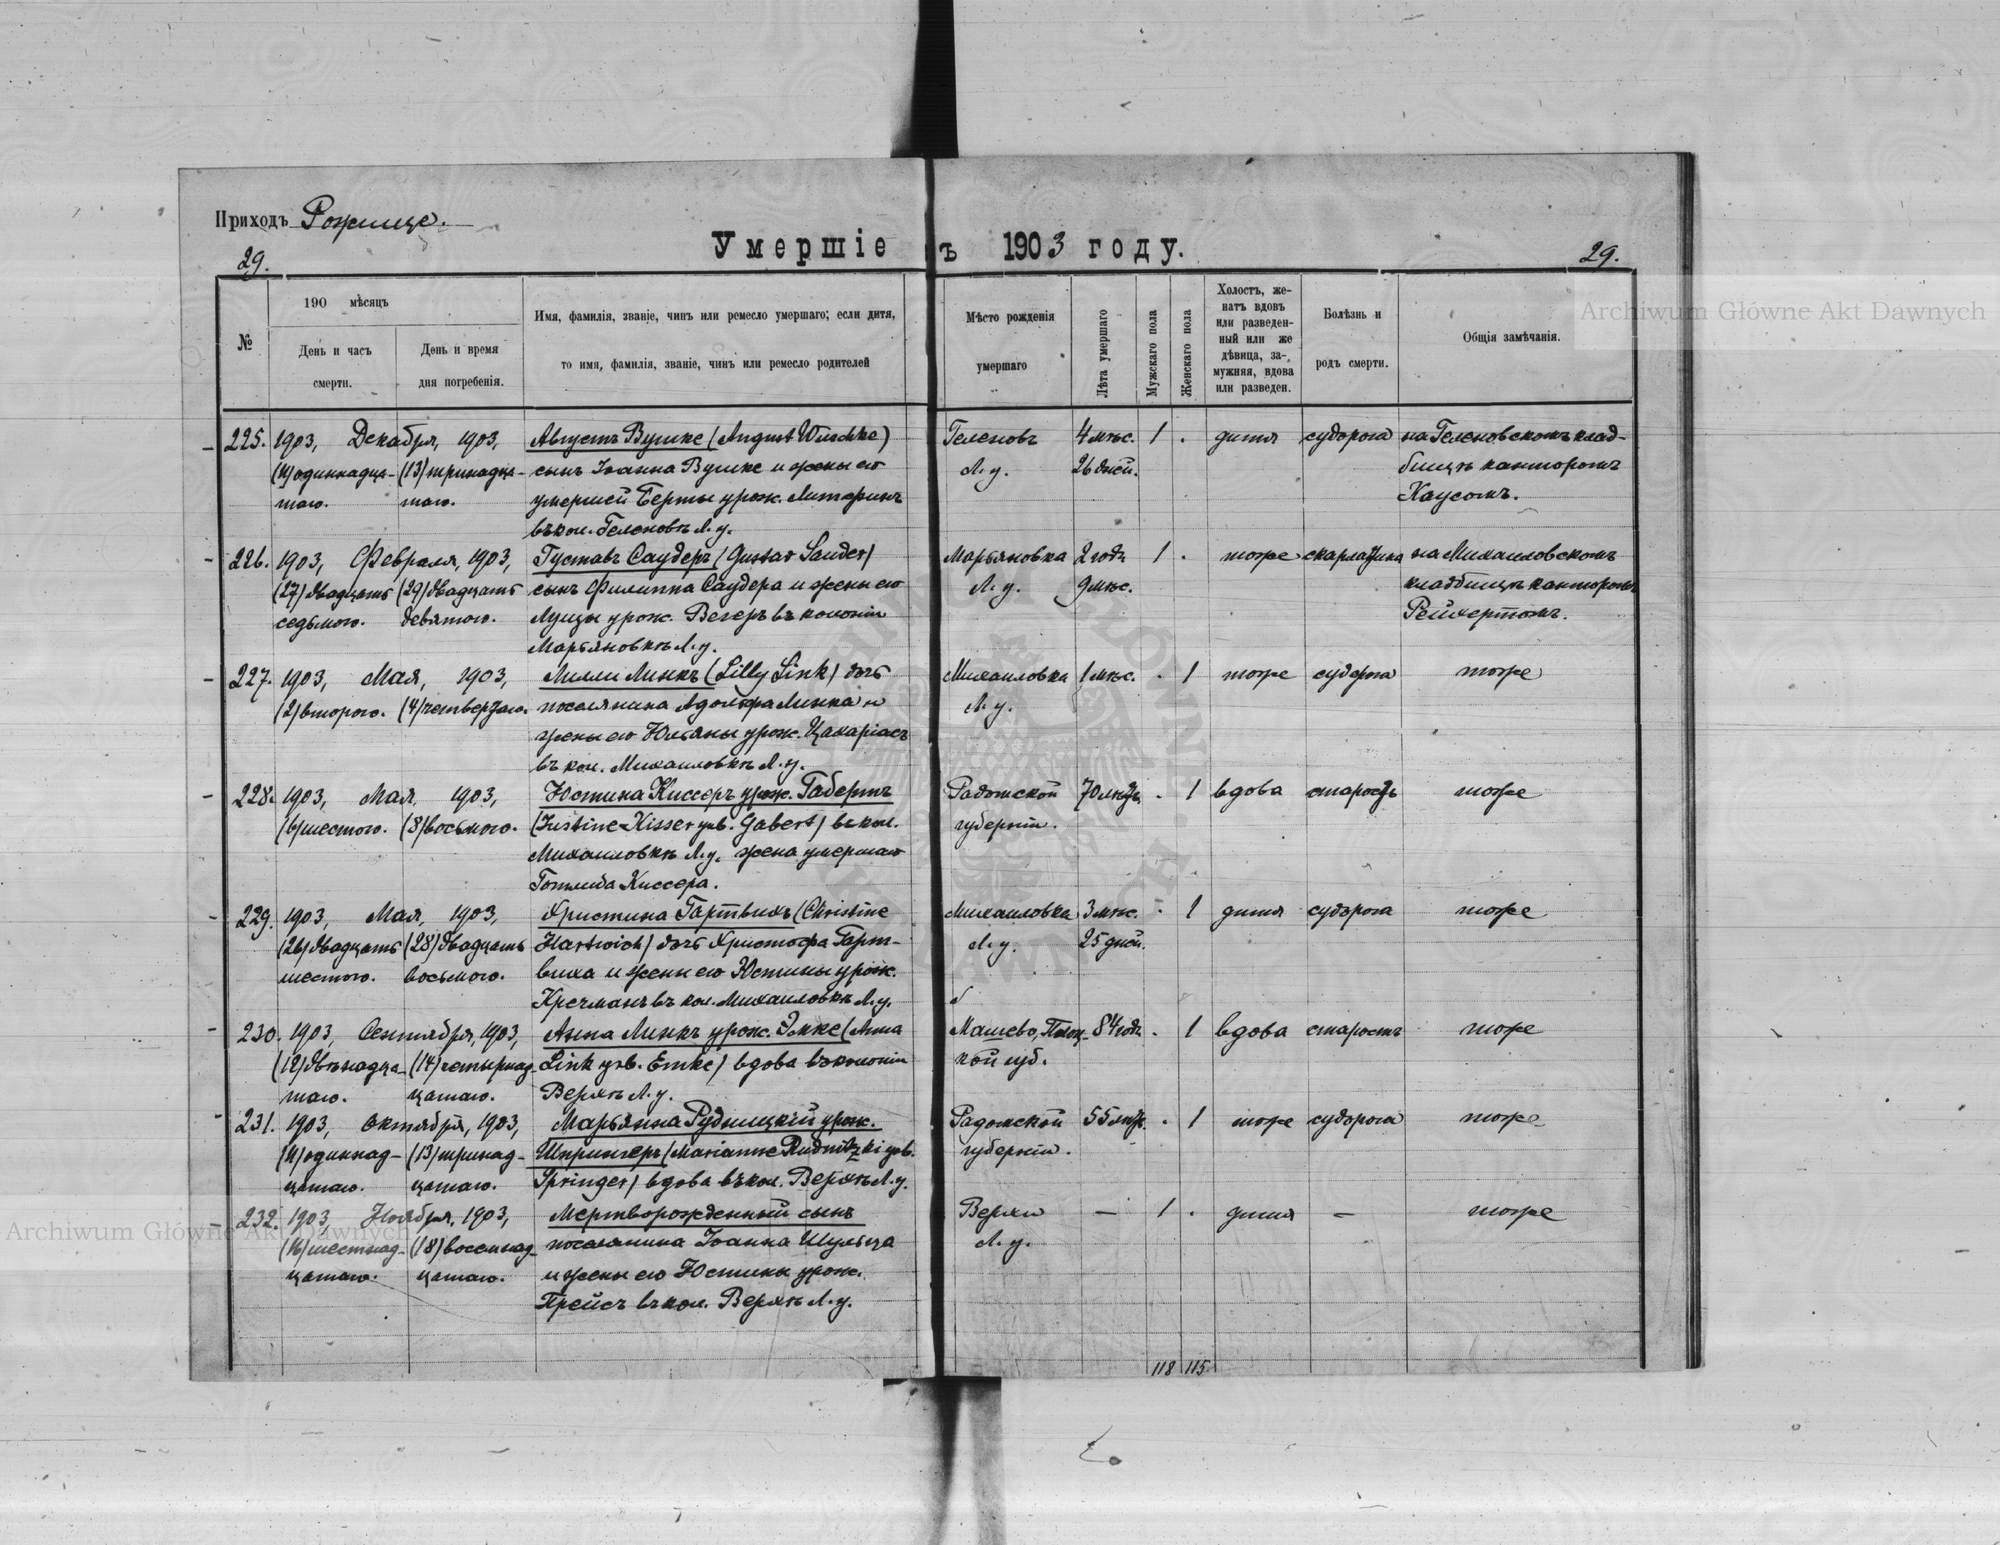 Приходъ Рожище.
Умершіе въ 1903 году.
29.
29.
№
190 мѣсяцъ
День и часъ смерти.
День и время дня погребенія.
Имя, фамилія, званіе, чинъ или ремесло умершаго; если дитя,
то имя, фамилія, званіе, чинъ или ремесло родителей
Мѣсто рожденія
умершаго
Лѣта умершаго
Мужскаго пола
Женскаго пола
Холостъ, же-
натъ вдовъ
или разведен-
ный или же
дѣвица, за-
мужняя, вдова
или разведен.
Болѣзнь и
родъ смерти.
Общія замѣчанія.
225. 1903, Декабря, 1903, Августъ Вушке (August Wuschke) Геленовъ 4 мѣс. 1 . дитя судорога на Геленовскомъ клад-
(11) одиннадца- (13) тринадца- сынъ Іоанна Вушке и жены его Л. у. 26 дней. бищѣ канторомъ
таго. таго. умершей Берты урож. Литтфинъ Хаусомъ.
въ кол. Геленовѣ Л. у.
226. 1903, Февраля, 1903, Густавъ Саудеръ (Gustav Sauder) Марьяновка 2 года 1 . тоже скарлатина на Михаиловскомъ
(27) двадцать (29) двадцать сынъ Филиппа Саудера и жены его Л. у. 9 мѣс. кладбищѣ канторомъ
седьмого. девятого. Луизы урож. Вегеръ въ колоніи Рейхертомъ.
Марьяновкѣ Л. у.
227. 1903, Мая, 1903, Лилли Линкъ (Lilly Link) дочь Михаиловка 1 мѣс. . 1 тоже судорога тоже
(2) второго. (4) четвертаго. поселянина Адольфа Линка и Л. у.
жены его Юльяны урож. Цахаріасъ
въ кол. Михаиловкѣ Л. у.
228. 1903, Мая, 1903, Юстина Киссеръ урож. Габертъ Радомской 70 лѣтъ. . 1 вдова старость тоже
(6) шестого. (8) восьмого. (Justine Kisser geb. Gabert) въ кол. губерніи.
Михаиловкѣ Л. у. жена умершаго
Готлиба Киссера.
229. 1903, Мая, 1903, Христина Гартвихъ (Christine Михаиловка 3 мѣс. . 1 дитя судорога тоже
(26) двадцать (28) двадцать Hartwich) дочь Христофа Гарт- Л. у. 25 дней.
шестого. восьмого. виха и жены его Юстины урож.
Кречманъ въ кол. Михаиловкѣ Л. у.
230. 1903, Сентября, 1903, Анна Линкъ урож. Эмке (Anna Машево, Плоц- 84 года. . 1 вдова старость тоже
(12) двѣнадца- (14) четырнад- Link geb. Emke) вдова въ колоніи кой губ.
таго. цатаго. Верхѣ Л. у.
231. 1903, Октября, 1903, Марьянна Рудницкій урож. Радомской 55 лѣтъ. . 1 тоже судорога тоже
(11) одиннад- (13) тринад- Шпрингеръ (Marianne Rudnitzki geb. губерніи.
цатаго. цатаго. Springer) вдова въ кол. Верхѣ Л. у.
232. 1903, Ноября, 1903, Мертворожденный сынъ Верхи — 1 . дитя — тоже
(16) шестнад- (18) восемнад- поселянина Іоанна Шульца Л. у.
цатаго. цатаго. и жены его Юстины урож.
Прейсъ въ кол. Верхѣ Л. у.
118 115.
Archiwum Główne Akt Dawnych
Archiwum Główne Akt Dawnych